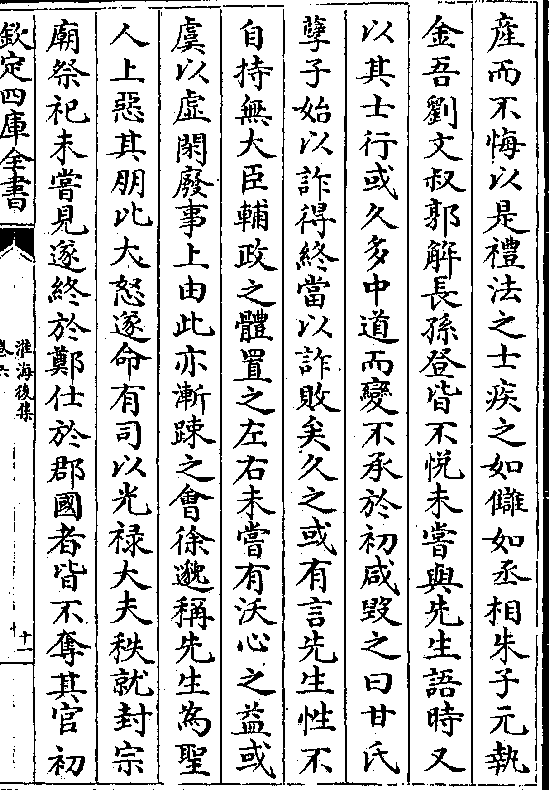 産而不悔以是禮法之士疾之如讎如丞相朱子元執
金吾劉文叔郭解長孫登皆不悦未嘗與先生語時又
以其士行或久多中道而變不承於初咸毁之曰甘氏
孽子始以詐得終當以詐敗矣久之或有言先生性不
自持無大臣輔政之體置之左右未嘗有沃心之益或
虞以虚閑廢事上由此亦漸踈之會徐邈稱先生為聖
人上惡其朋比大怒遂命有司以光禄大夫秩就封宗
廟祭祀未嘗見遂終於鄭仕於郡國者皆不奪其官初
欽定四庫全書
淮海後集
卷六
十一